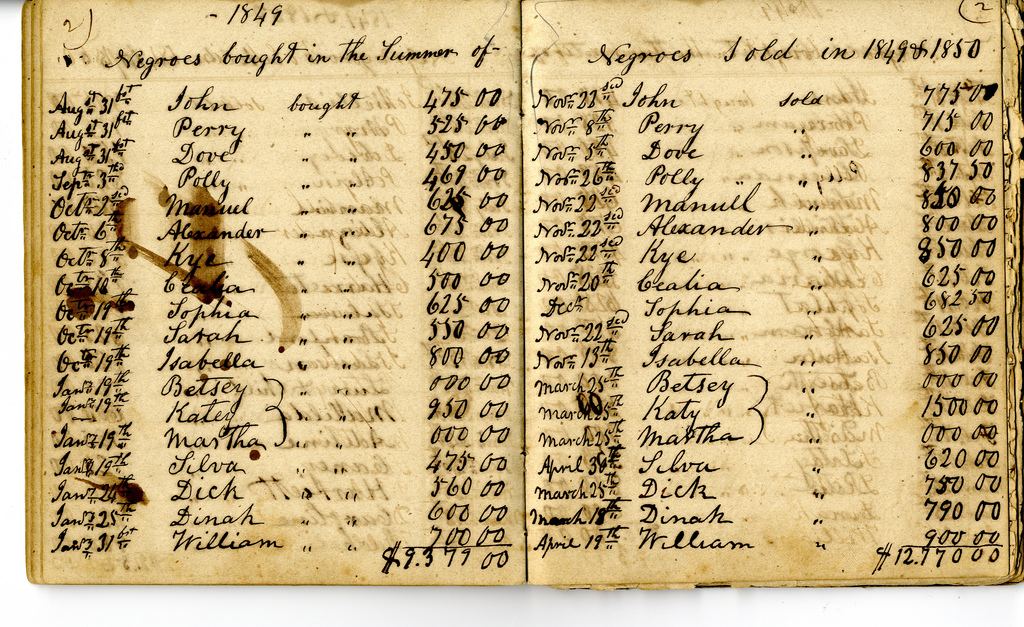 2)
- 1849
Negroes bought in the Summer of -
Augst 31st John bought 475 00
Augst 31st Perry " " 525 00
Augst 31st Dove " " 450 00
Septr 3rd Polly " " 469 00
Octr 2nd Manuel " " 625 00
Octr 6th Alexander " " 675 00
Octr 8th Kye " " 400 00
Octr 18 Cealia " " 500 00
Octr 19th Sophia " " 625 00
Octr 19th Sarah " " 550 00
Octr 19th Isabella " " 800 00
Jany 19th Betsey 000 00
Jany 19th Katey " " 950 00
Jany 19th Martha " " 000 00
Jany 19th Silva " " 475 00
Jany 24th Dick " " 560 00
Jany 25th Dinah " " 600 00
Jany 31st William " " 700 00
$9.379 00
2
Negroes Sold in 1849 & 1850
Novr 22nd John sold 775 00
Novr 8th Perry " 715 00
Novr 5th Dove " 600 00
Novr 26th Polly " " 837 50
Novr 22nd Manuell " 810 00
Novr 22nd Alexander " 800 00
Novr 22nd Kye " 850 00
Novr 20th Cealia " 625 00
Decr Sophia " 682 50
Novr 22nd Sarah " 625 00
Novr 13th Isabella " 850 00
March 25th Betsey " 000 00
March 25th Katy " 1500 00
March 25th Martha " 000 00
April 30th Silva " 620 00
March 25th Dick " 750 00
March 18th Dinah " 790 00
April 19th William " 900 00
$12.770 00